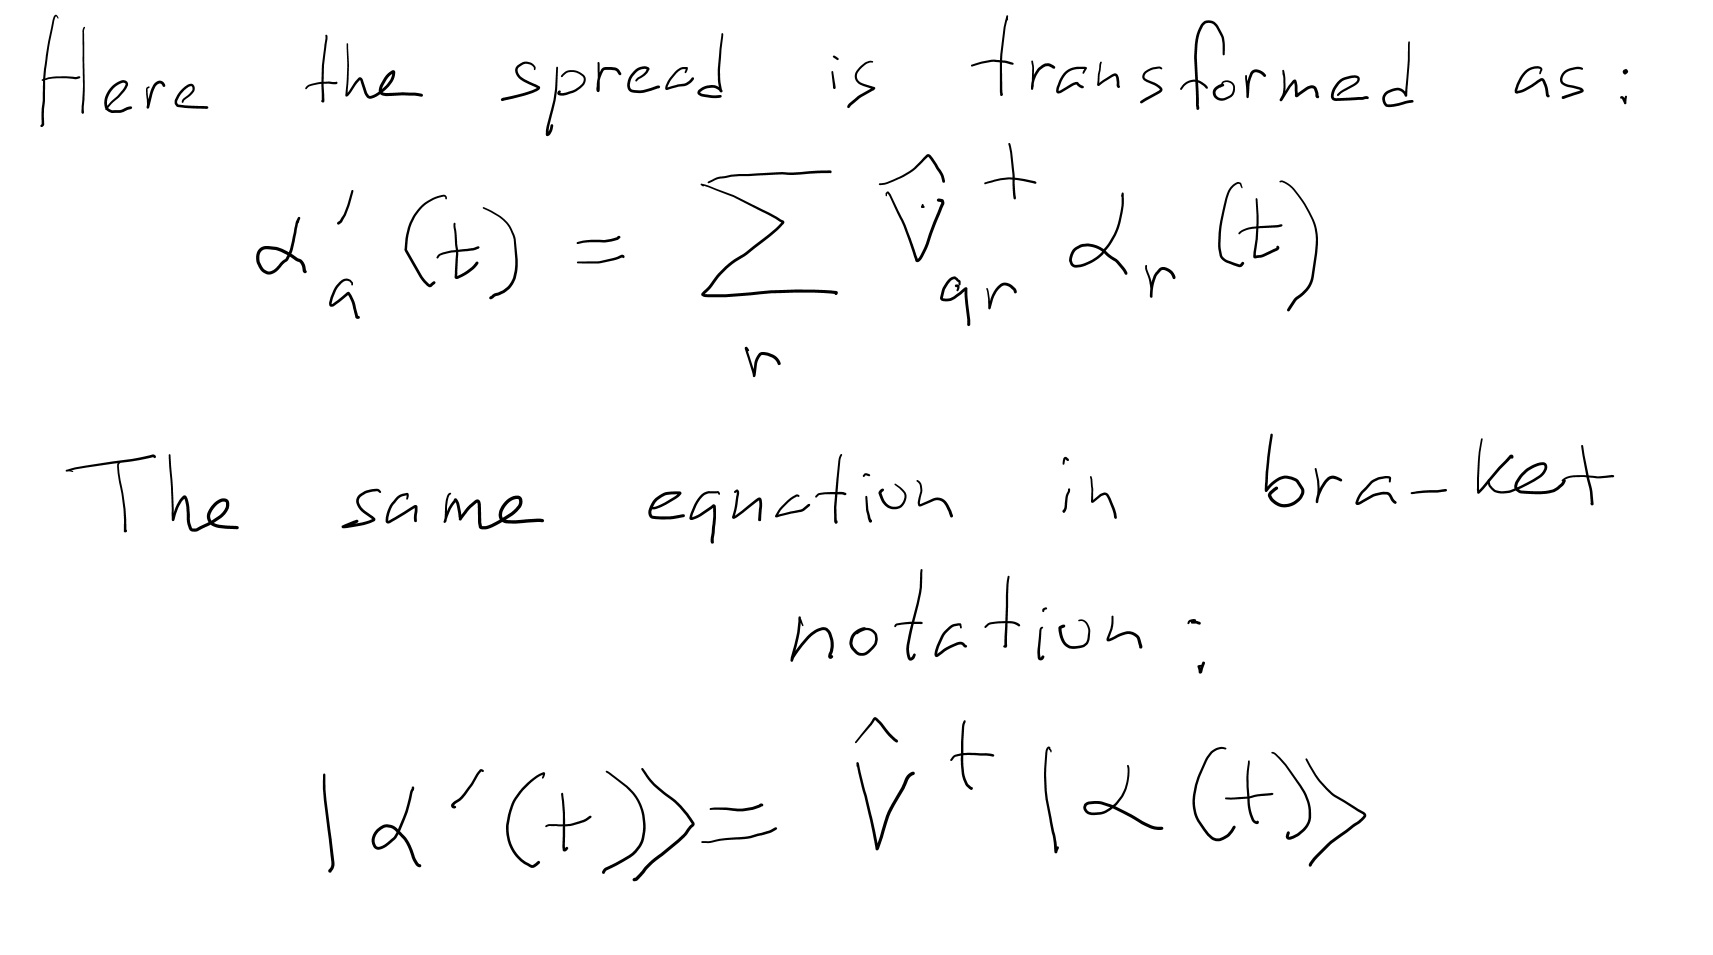 Here the spread is transformed as:
α'_q (t) = Σ_r V̂^†_qr α_r (t)
The same equation in bra-ket
notation:
|α'(t)⟩ = V̂^† |α(t)⟩